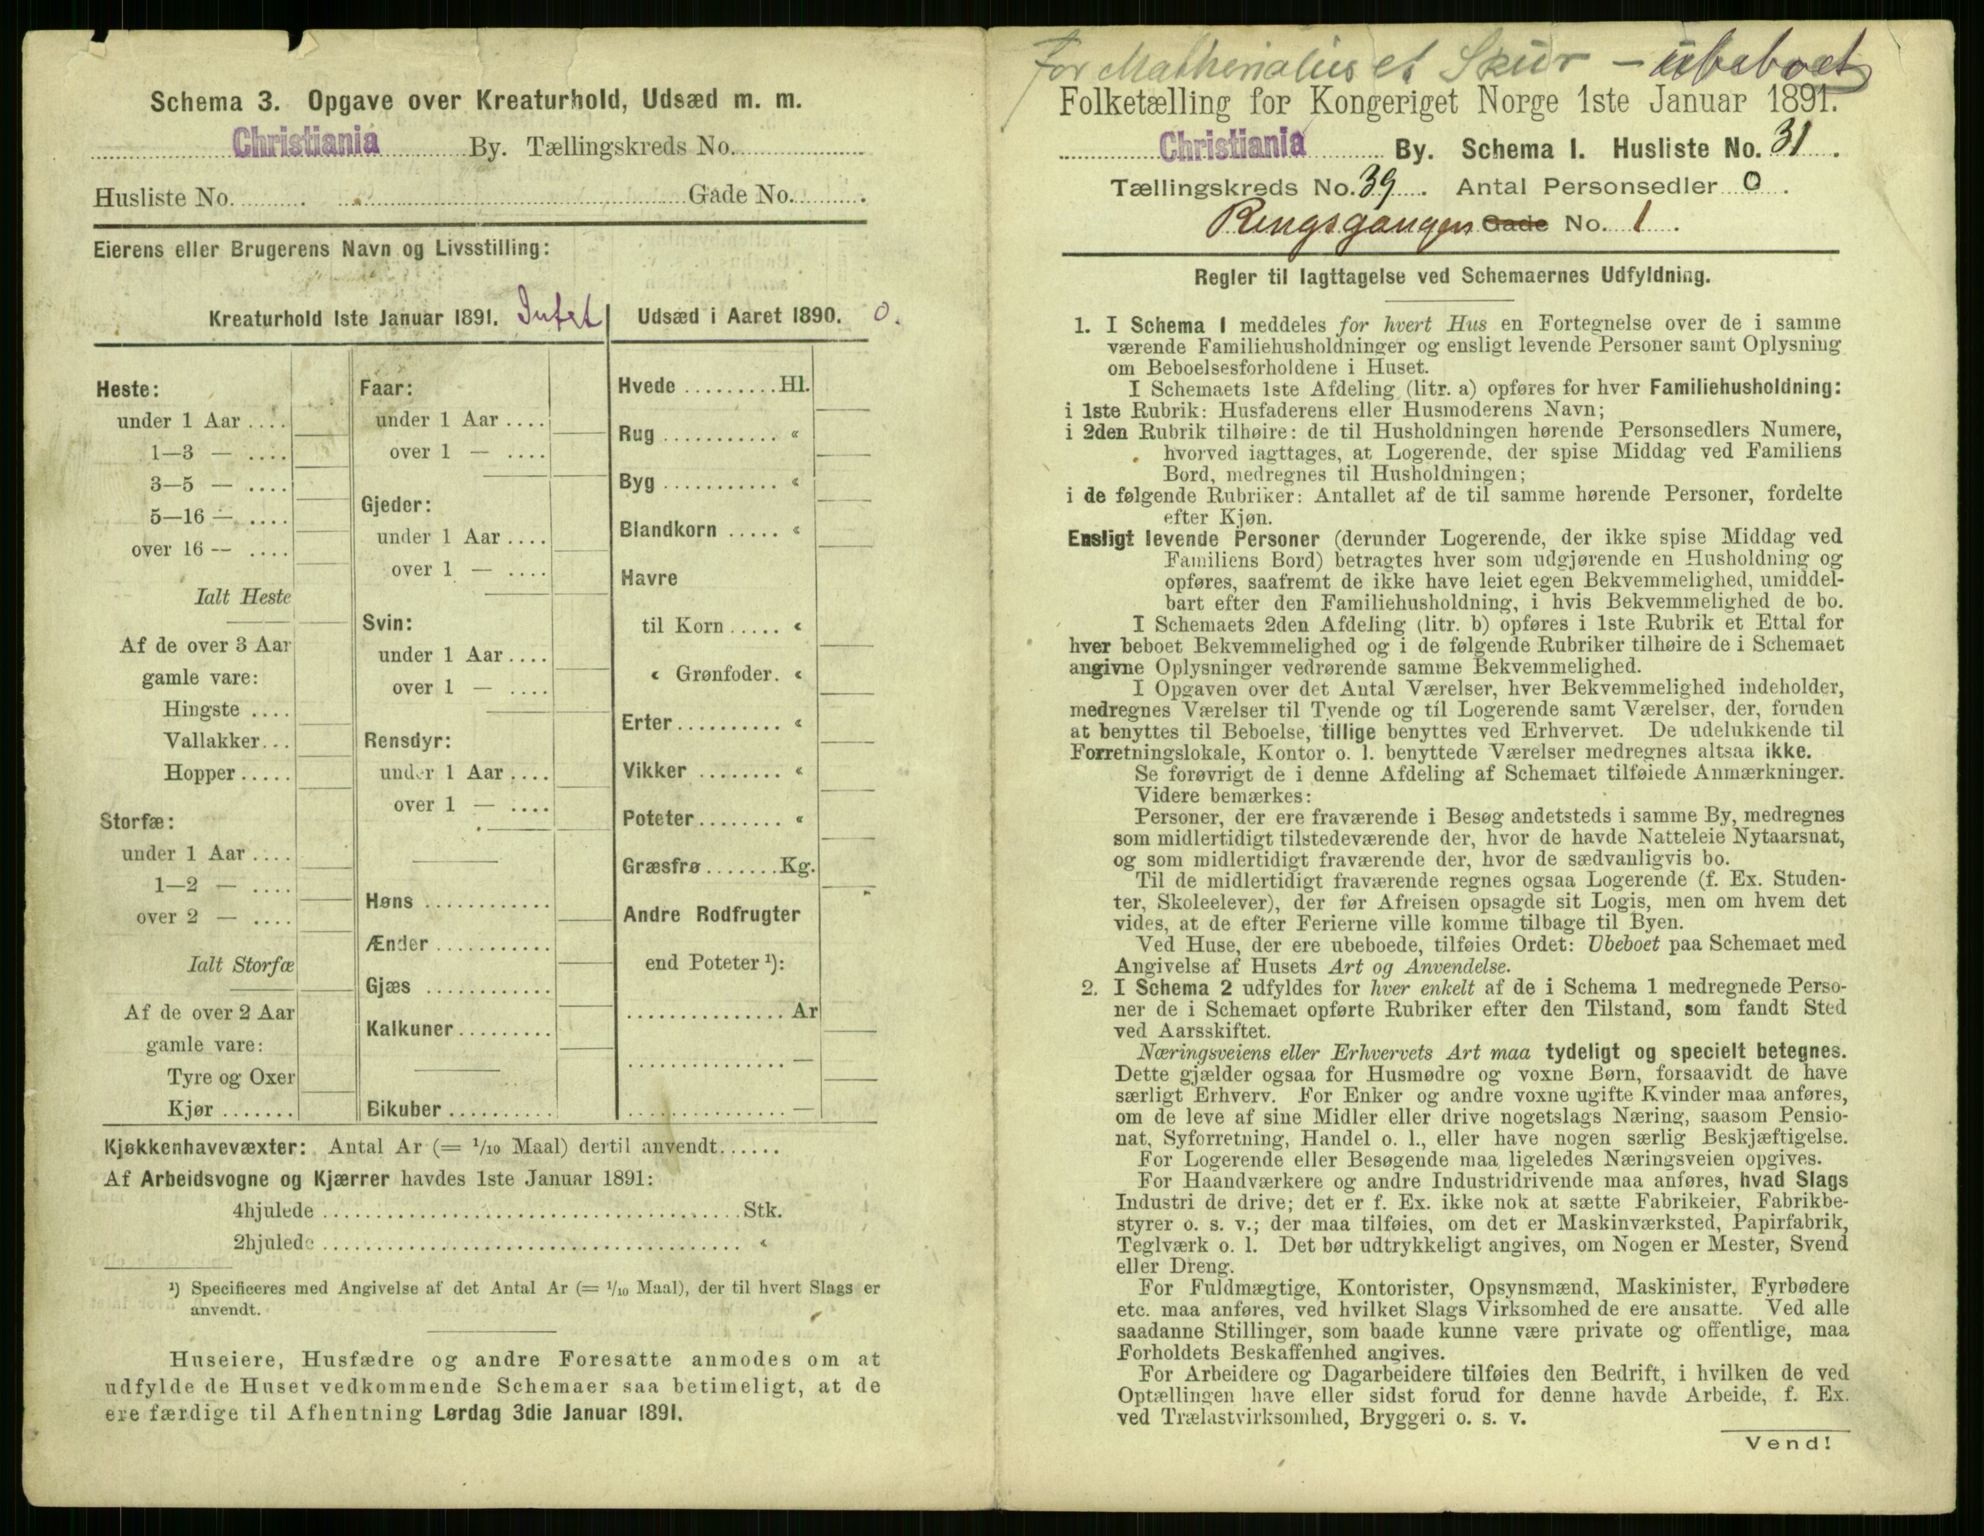 Schema 3. Opgave over Kreaturhold, Udsæd m. m.
Christiania By. Tællingskreds No.
Husliste No. . Gade No. .
Eierens eller Brugerens Navn og Livsstilling:
Kreaturhold 1ste Januar 1891. Intet
Heste:
under 1 Aar ....
1—3 — ....
3—5 — ....
5—16 — ....
over 16 — ....
Ialt Heste
Af de over 3 Aar
gamle vare:
Hingste ....
Vallakker...
Hopper .....
Storfæ:
under 1 Aar ....
1—2 — ....
over 2 — ....
Ialt Storfæ
Af de over 2 Aar
gamle vare:
Tyre og Oxer
Kjør .......
Faar:
under 1 Aar ....
over 1 — ....
Gjeder:
under 1 Aar ....
over 1 — ....
Svin:
under 1 Aar ....
over 1 — ....
Rensdyr:
under 1 Aar ....
over 1 — ....
Høns ............
Ænder ...........
Gjæs ............
Kalkuner .........
Bikuber ..........
Udsæd i Aaret 1890. 0.
Hvede .........Hl.
Rug ........... «
Byg ........... «
Blandkorn ..... «
Havre
til Korn ..... «
« Grønfoder. «
Erter .......... «
Vikker ........ «
Poteter ........ «
Græsfrø .......Kg.
Andre Rodfrugter
end Poteter ¹):
............... Ar
............... —
............... —
Kjøkkenhavevæxter: Antal Ar (= 1/10 Maal) dertil anvendt......
Af Arbeidsvogne og Kjærrer havdes 1ste Januar 1891:
4hjulede ....................................Stk.
2hjulede .................................... «
¹) Specificeres med Angivelse af det Antal Ar (= 1/10 Maal), der til hvert Slags er
anvendt.
Huseiere, Husfædre og andre Foresatte anmodes om at
udfylde de Huset vedkommende Schemaer saa betimeligt, at de
ere færdige til Afhentning Lørdag 3die Januar 1891.
For Matherialier et Skur – ubeboet
Folketælling for Kongeriget Norge 1ste Januar 1891.
Christiania By. Schema 1. Husliste No. 31.
Tællingskreds No. 39. Antal Personsedler 0.
Ringsgangen Gade No. 1.
Regler til Iagttagelse ved Schemaernes Udfyldning.
1. I Schema 1 meddeles for hvert Hus en Fortegnelse over de i samme
værende Familiehusholdninger og ensligt levende Personer samt Oplysning
om Beboelsesforholdene i Huset.
I Schemaets 1ste Afdeling (litr. a) opføres for hver Familiehusholdning:
i 1ste Rubrik: Husfaderens eller Husmoderens Navn;
i 2den Rubrik tilhøire: de til Husholdningen hørende Personsedlers Numere,
hvorved iagttages, at Logerende, der spise Middag ved Familiens
Bord, medregnes til Husholdningen;
i de følgende Rubriker: Antallet af de til samme hørende Personer, fordelte
efter Kjøn.
Ensligt levende Personer (derunder Logerende, der ikke spise Middag ved
Familiens Bord) betragtes hver som udgjørende en Husholdning og
opføres, saafremt de ikke have leiet egen Bekvemmelighed, umiddel-
bart efter den Familiehusholdning, i hvis Bekvemmelighed de bo.
I Schemaets 2den Afdeling (litr. b) opføres i 1ste Rubrik et Ettal for
hver beboet Bekvemmelighed og i de følgende Rubriker tilhøire de i Schemaet
angivne Oplysninger vedrørende samme Bekvemmelighed.
I Opgaven over det Antal Værelser, hver Bekvemmelighed indeholder,
medregnes Værelser til Tyende og til Logerende samt Værelser, der, foruden
at benyttes til Beboelse, tillige benyttes ved Erhvervet. De udelukkende til
Forretningslokale, Kontor o. l. benyttede Værelser medregnes altsaa ikke.
Se forøvrigt de i denne Afdeling af Schemaet tilføiede Anmærkninger.
Videre bemærkes:
Personer, der ere fraværende i Besøg andetsteds i samme By, medregnes
som midlertidigt tilstedeværende der, hvor de havde Natteleie Nytaarsnat,
og som midlertidigt fraværende der, hvor de sædvanligvis bo.
Til de midlertidigt fraværende regnes ogsaa Logerende (f. Ex. Studen-
ter, Skoleelever), der før Afreisen opsagde sit Logis, men om hvem det
vides, at de efter Ferierne ville komme tilbage til Byen.
Ved Huse, der ere ubeboede, tilføies Ordet: Ubeboet paa Schemaet med
Angivelse af Husets Art og Anvendelse.
2. I Schema 2 udfyldes for hver enkelt af de i Schema 1 medregnede Perso-
ner de i Schemaet opførte Rubriker efter den Tilstand, som fandt Sted
ved Aarsskiftet.
Næringsveiens eller Erhvervets Art maa tydeligt og specielt betegnes.
Dette gjælder ogsaa for Husmødre og voxne Børn, forsaavidt de have
særligt Erhverv. For Enker og andre voxne ugifte Kvinder maa anføres,
om de leve af sine Midler eller drive nogetslags Næring, saasom Pensio-
nat, Syforretning, Handel o. l., eller have nogen særlig Beskjæftigelse.
For Logerende eller Besøgende maa ligeledes Næringsveien opgives.
For Haandværkere og andre Industridrivende maa anføres, hvad Slags
Industri de drive; det er f. Ex. ikke nok at sætte Fabrikeier, Fabrikbe-
styrer o. s. v.; der maa tilføies, om det er Maskinværksted, Papirfabrik,
Teglværk o. l. Det bør udtrykkeligt angives, om Nogen er Mester, Svend
eller Dreng.
For Fuldmægtige, Kontorister, Opsynsmænd, Maskinister, Fyrbødere
etc. maa anføres, ved hvilket Slags Virksomhed de ere ansatte. Ved alle
saadanne Stillinger, som baade kunne være private og offentlige, maa
Forholdets Beskaffenhed angives.
For Arbeidere og Dagarbeidere tilføies den Bedrift, i hvilken de ved
Optællingen have eller sidst forud for denne havde Arbeide, f. Ex.
ved Trælastvirksomhed, Bryggeri o. s. v.
Vend!